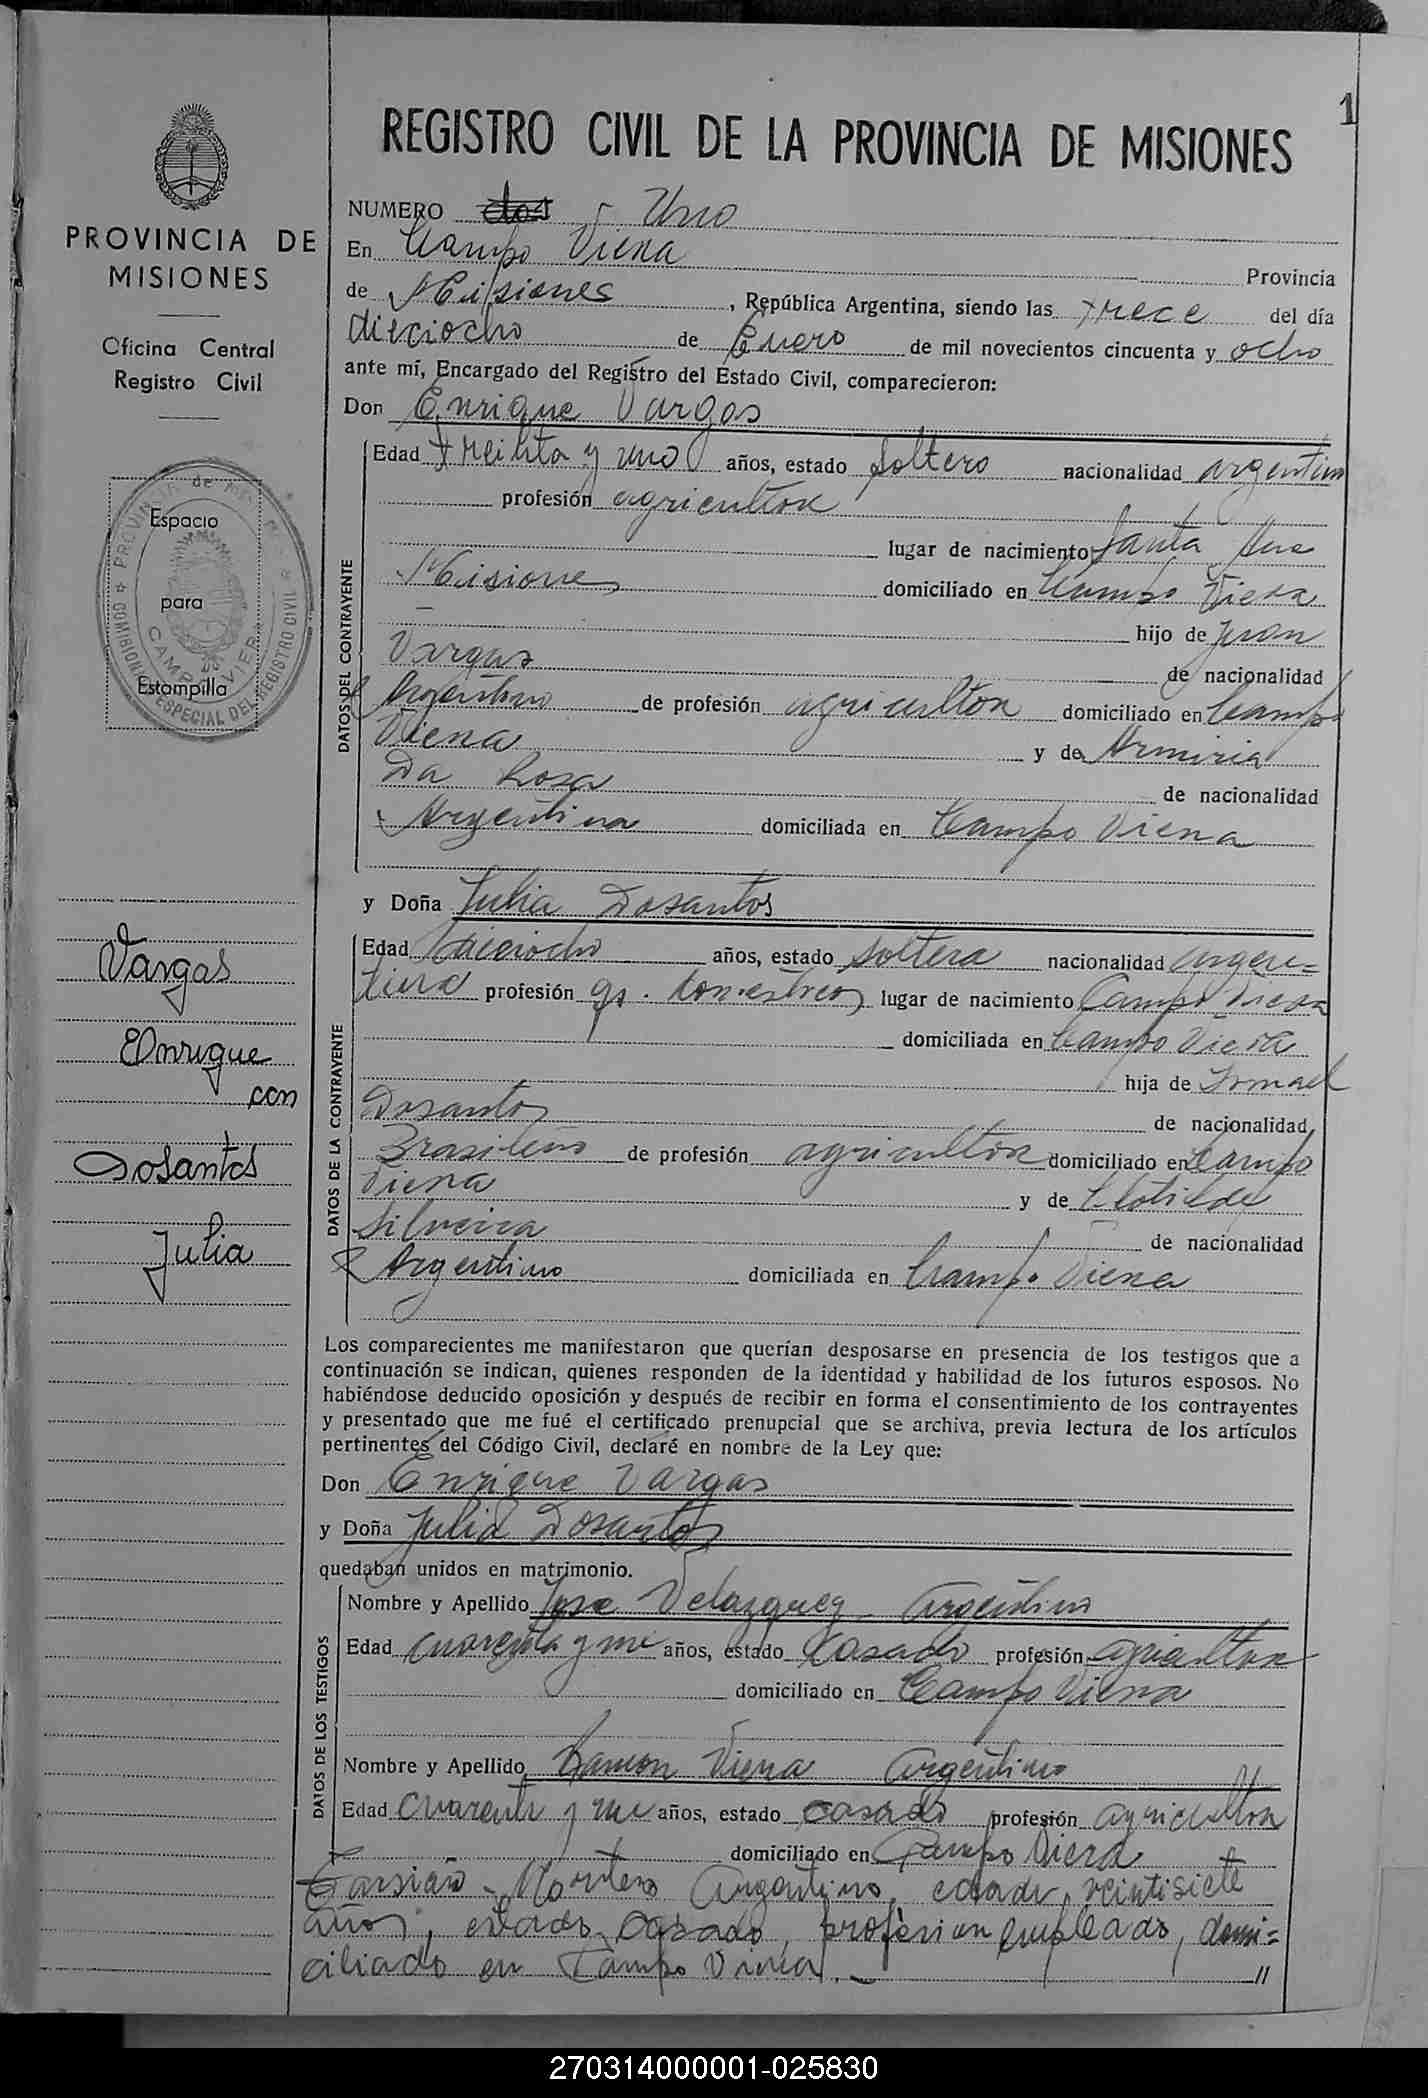 1
REGISTRO CIVIL DE LA PROVINCIA DE MISIONES
PROVINCIA DE
MISIONES
Oficina Central
Registro Civil
Espacio
para
Estampilla
Vargas
Enrique
con
Dosantos
Julia
NUMERO dos - Uno
En Campo Viera Provincia
de Misiones, República Argentina, siendo las trece del día
dieciocho de Enero de mil novecientos cincuenta y ocho
ante mí, Encargado del Registro del Estado Civil, comparecieron:
Don Enrique Vargas
DATOS DEL CONTRAYENTE
Edad treinta y uno años, estado soltero nacionalidad argentino
profesión agricultor
lugar de nacimiento Santa Ana
Misiones domiciliado en Campo Viera
hijo de Juan
Vargas de nacionalidad
Argentino de profesión agricultor domiciliado en Campo
Viera y de
Da Rosa de nacionalidad
Argentina domiciliada en Campo Viera
y Doña Julia Dosantos
DATOS DE LA CONTRAYENTE
Edad dieciocho años, estado soltera nacionalidad argen=
tina profesión qs. domésticos lugar de nacimiento Campo Viera
domiciliada en Campo Viera
hija de Ismael
Dosantos de nacionalidad
Brasileño de profesión agricultor domiciliado en Campo
Viera y de Clotilde
Silveira de nacionalidad
Argentino domiciliada en Campo Viera
Los comparecientes me manifestaron que querían desposarse en presencia de los testigos que a
continuación se indican, quienes responden de la identidad y habilidad de los futuros esposos. No
habiéndose deducido oposición y después de recibir en forma el consentimiento de los contrayentes
y presentado que me fué el certificado prenupcial que se archiva, previa lectura de los artículos
pertinentes del Código Civil, declaré en nombre de la Ley que:
Don Enrique Vargas
y Doña Julia Dosantos
quedaban unidos en matrimonio.
DATOS DE LOS TESTIGOS
Nombre y Apellido Jose Velazquez - Argentino
Edad cuarenta y años, estado Casado profesión agricultor
domiciliado en Campo Viera
Nombre y Apellido Ramon Viera Argentino
Edad cuarenta y años, estado casado profesión agricultor
domiciliado en Campo Viera
Argentino, edad, veintisiete
años, estado, casado, profesion empleado, domi=
ciliado en Campo Viera. - "
270314000001-025830